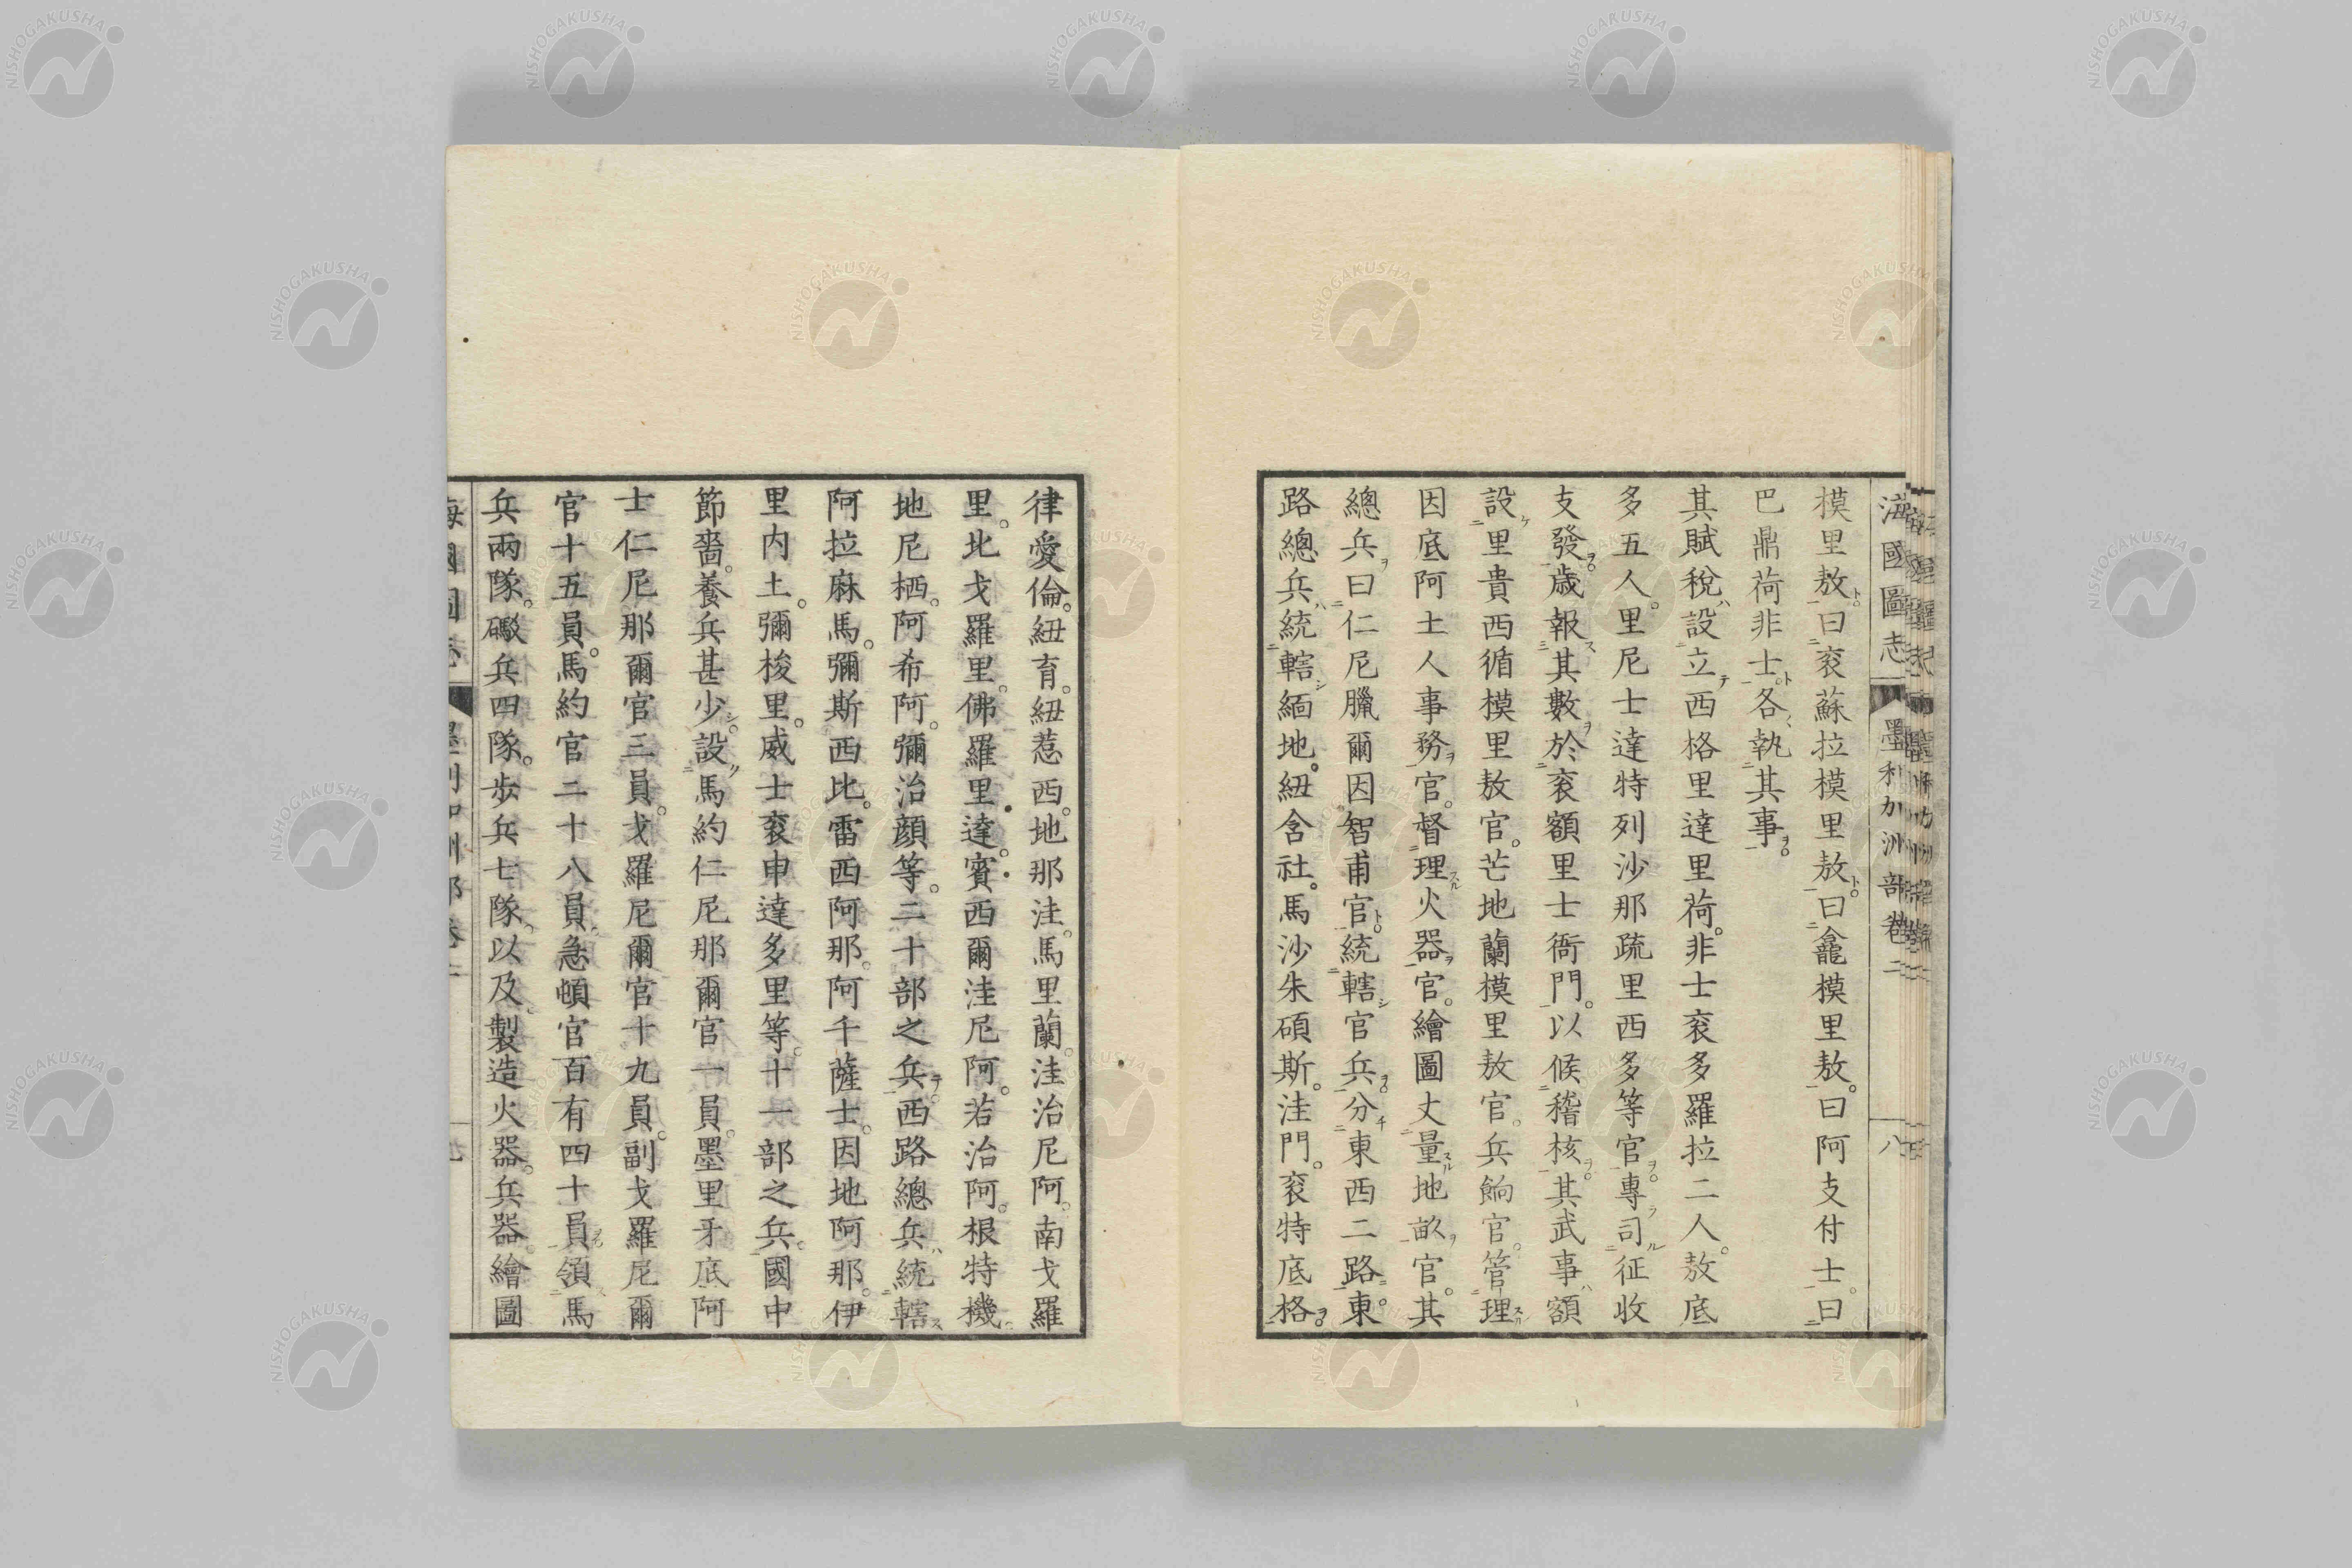 海國圖志 墨利加洲部卷二 八
模里敖曰衮蘇拉模里敖曰龕模里敖曰阿支付士曰
巴鼎荷非士各執其事
其賦稅設立西格里達里荷非士衮多羅拉二人敖底
多五人里尼士達特列沙那疏里西多等官專司征收
支發歲報其數於衮額里士衙門以候稽核其武事額
設里貴西循模里敖官芒地蘭模里敖官兵餉官管理
因底阿士人事務官督理火器官繪圖丈量地畝官其
總兵曰仁尼臘爾因智甫官統轄官兵分東西二路東
路總兵統轄緬地紐含社馬沙朱碩斯洼門衮特底格
律愛倫紐育紐惹西地那洼馬里蘭洼治尼阿南戈羅
里北戈羅里佛羅里達賓西爾洼尼阿若治阿根特機
地尼栖阿希阿彌治顏等二十部之兵西路總兵統轄
阿拉麻馬彌斯西比雷西阿那阿千薩士因地阿那伊
里內土彌梭里威士衮申達多里等十一部之兵國中
節嗇養兵甚少設馬約仁尼那爾官一員墨里牙底阿
士仁尼那爾官三員戈羅尼爾官十九員副戈羅尼爾
官十五員馬約官二十八員急頓官百有四十員領馬
兵兩隊礮兵四隊步兵七隊以及製造火器兵器繪圖
NISHOGAKUSHA